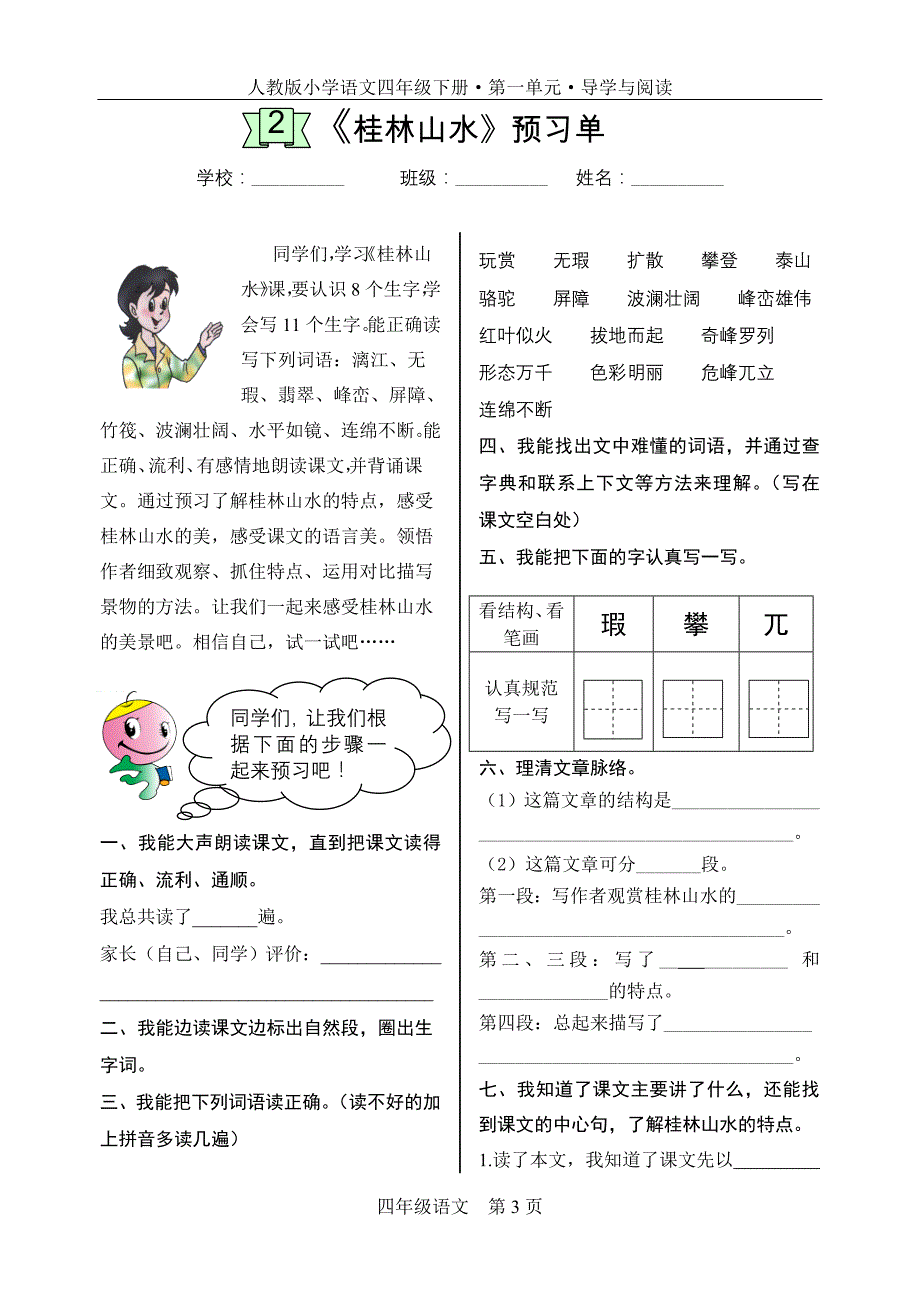 人教版小学语文四年级下册·第一单元·导学与阅读
2 《桂林山水》预习单
学校：__________ 班级：__________ 姓名：__________
同学们,学习《桂林山
水》课,要认识 8 个生字,学
会写 11 个生字。能正确读
写下列词语：漓江、无
瑕、翡翠、峰峦、屏障、
竹筏、波澜壮阔、水平如镜、连绵不断。能
正确、流利、有感情地朗读课文,并背诵课
文。通过预习了解桂林山水的特点，感受
桂林山水的美，感受课文的语言美。领悟
作者细致观察、抓住特点、运用对比描写
景物的方法。让我们一起来感受桂林山水
的美景吧。相信自己，试一试吧……
同学们, 让我们根
据下面的步骤一
起来预习吧！
一、我能大声朗读课文，直到把课文读得
正确、流利、通顺。
我总共读了_______遍。
家长（自己、同学）评价：_____________
____________________________________
二、我能边读课文边标出自然段，圈出生
字词。
三、我能把下列词语读正确。（读不好的加
上拼音多读几遍）
玩赏 无瑕 扩散 攀登 泰山
骆驼 屏障 波澜壮阔 峰峦雄伟
红叶似火 拔地而起 奇峰罗列
形态万千 色彩明丽 危峰兀立
连绵不断
四、我能找出文中难懂的词语，并通过查
字典和联系上下文等方法来理解。（写在
课文空白处）
五、我能把下面的字认真写一写。
看结构、看
笔画 瑕 攀 兀
认真规范
写一写
六、理清文章脉络。
（1）这篇文章的结构是________________
__________________________________。
（2）这篇文章可分_______段。
第一段：写作者观赏桂林山水的_________
_________________________________。
第二、三段：写了______________ 和
______________的特点。
第四段：总起来描写了________________
__________________________________。
七、我知道了课文主要讲了什么，还能找
到课文的中心句，了解桂林山水的特点。
1.读了本文，我知道了课文先以_________
四年级语文 第 3 页